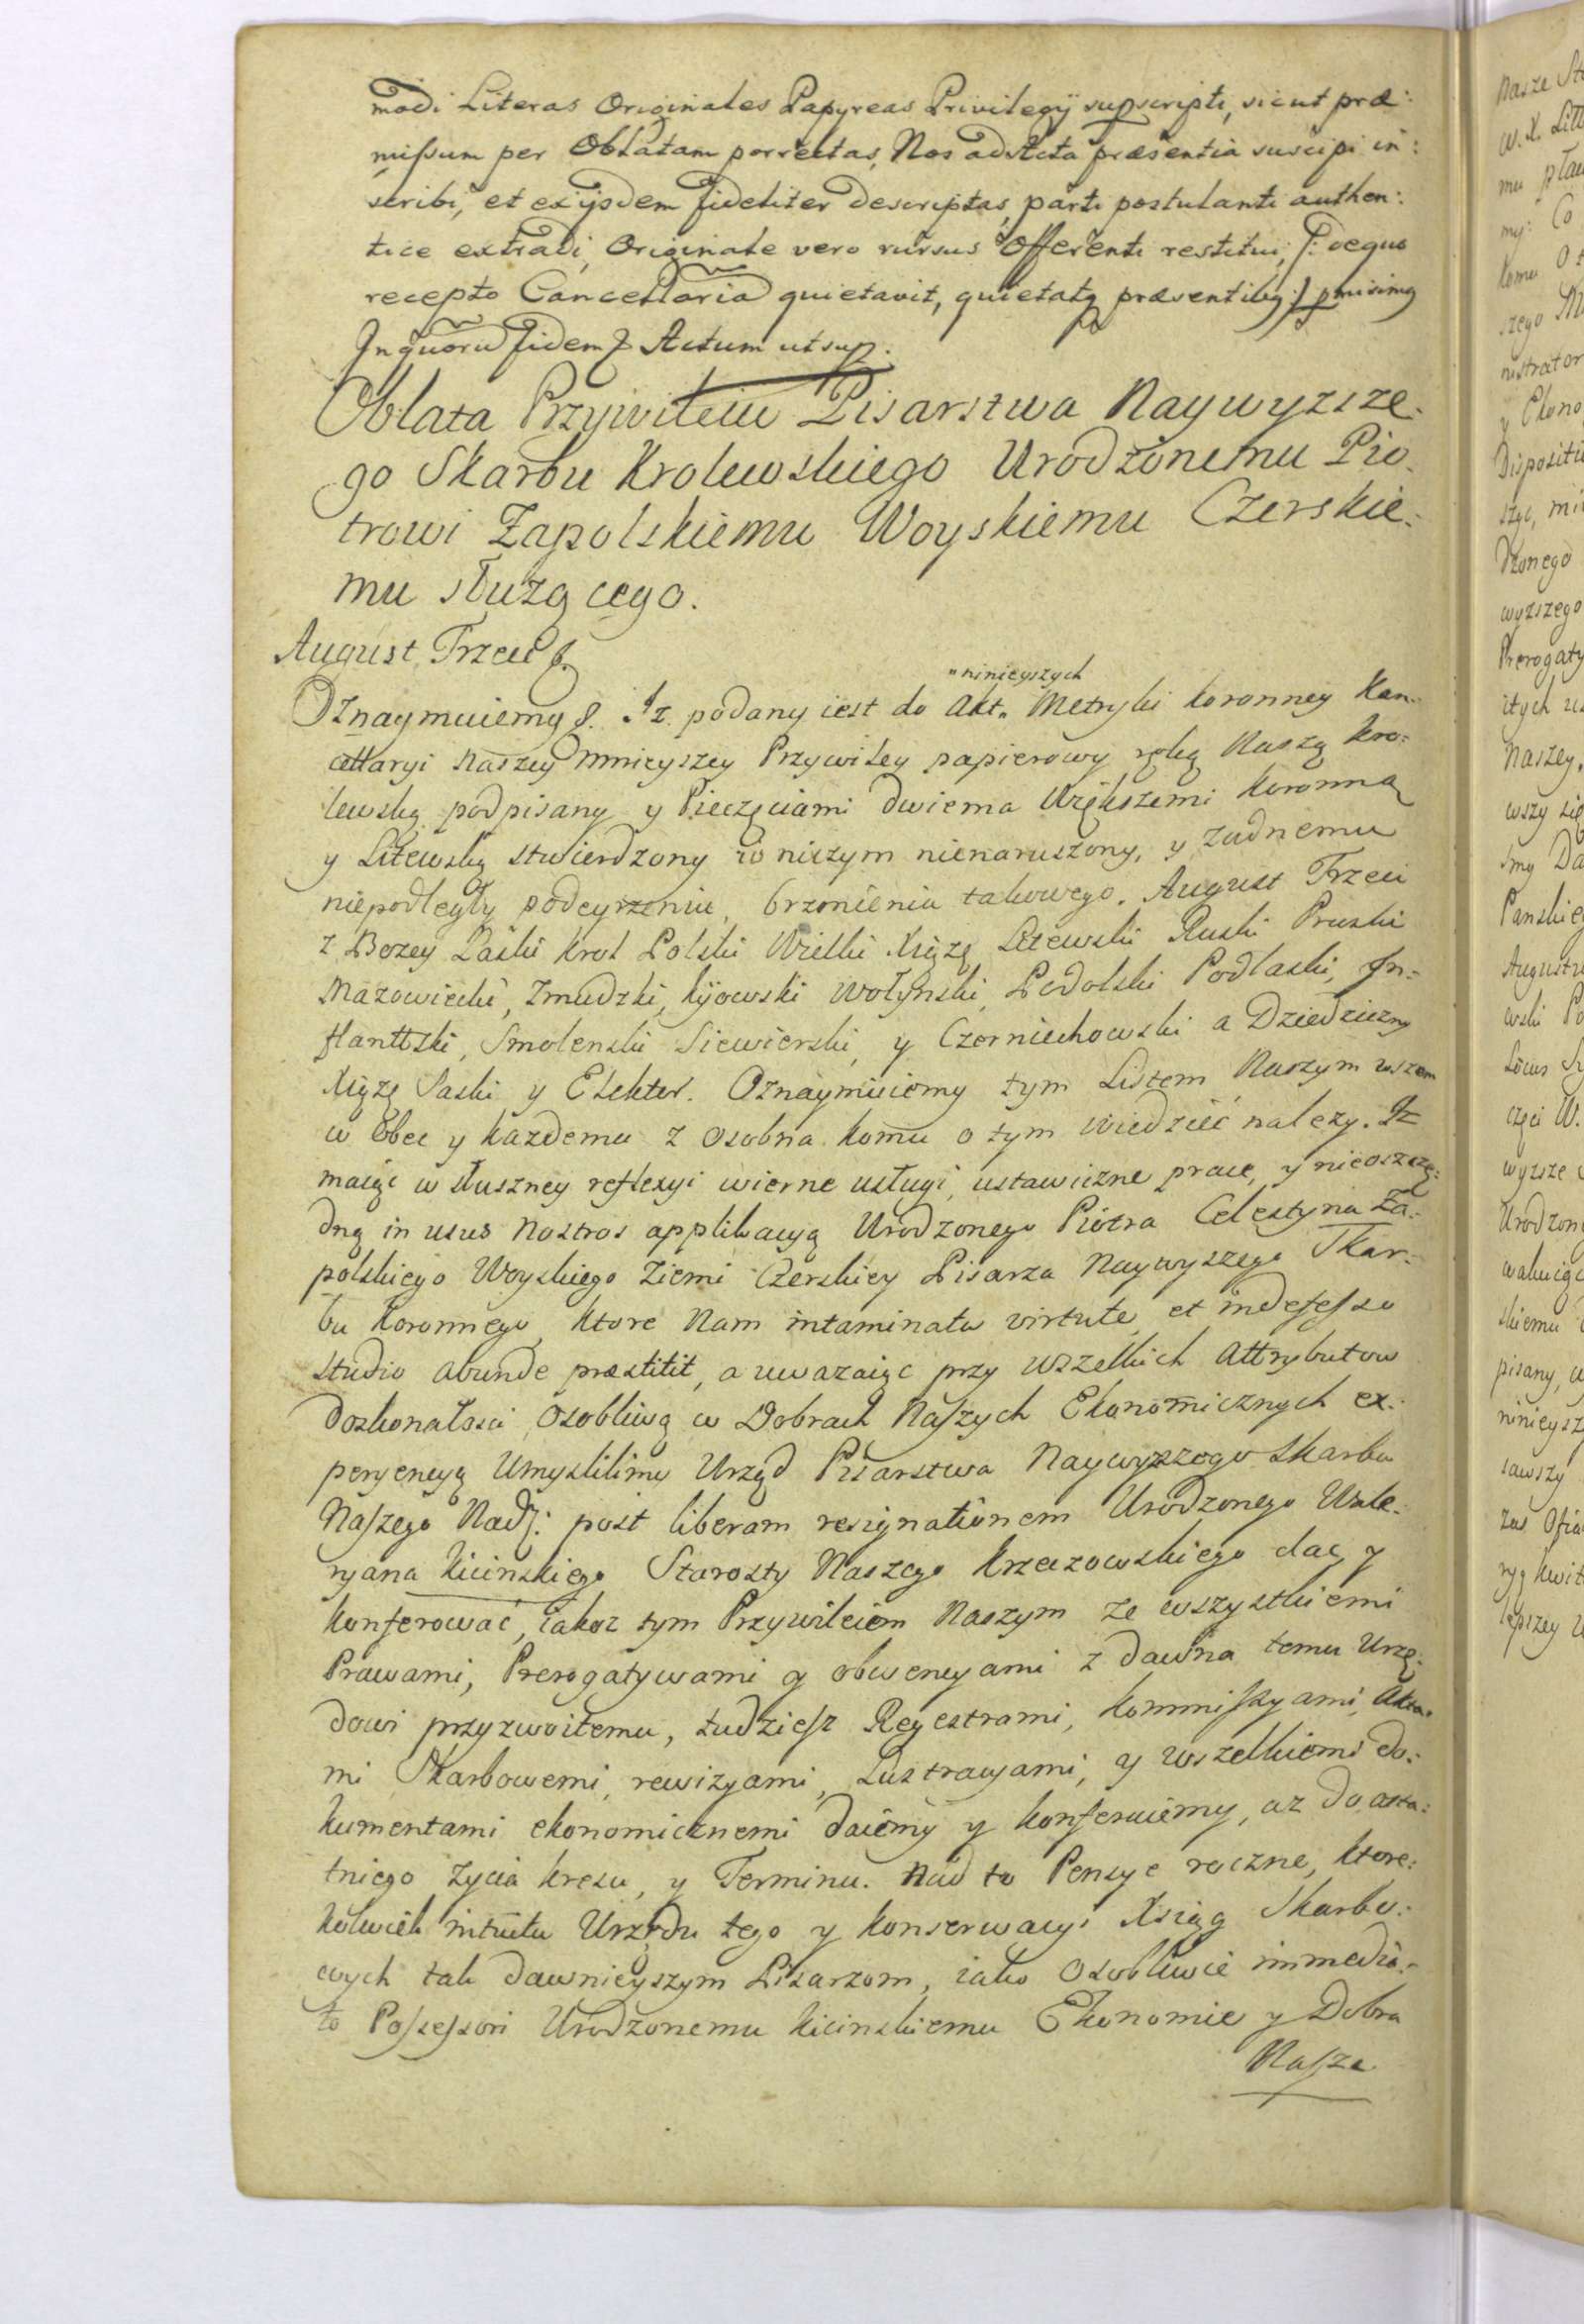 modi Literas Originales Papyreas Privilegÿ supscripti, sicut præ:
missum per Oblatam porrectas, Nos ad Acta præsentia suscipi in:
scribi, et ex ijsdem fideliter descriptas, parti postulanti authen:
tice extradi, Originale vero rursus Offerenti restitui, /: de quo
recepto Cancellaria quietavit, quietatq præsentibq :/ pmisimq
In quorū fidem & Actum ut sup.
Oblata Przywileiu Pisarstwa Naywyzsze:
go Skarbu Krolewskiego Urodzonemu Pio:
trowi Zapolskiemu Woyskiemu Czerskie:
mu służącego.
August Trzeci &.
"ninieyszych
Oznaymuiemy &. Iz podany iest do Akt" Metryki koronney Kan:
cellaryi Naszey mnieyszey Przywiley papierowy ręką Naszą Kro:
lewską podpisany y Pieczęciami dwiema Większemi Koronną
y Litewską stwierdzony w niczym nienaruszony, y zadnemu
niepodległy podeyrzeniu, brzmienia takowego. August Trzeci
z Bozey Łaski Krol Polski Wielki Xiąze Litewski Ruski Pruski
Mazowiecki, Zmudzki, Kijowski Wołyński, Podolski Podlaski, In:
flanttski, Smolenski Siewierski, y Czerniechowski a Dziedziczny
Xiąze Saski y Elektor. Oznaymuiemy tym Listem Naszym wszem
w Obec y kazdemu z osobna komu o tym wiedzieć nalezy. Iz
maiąc w słuszney reflexyi wierne usługi, ustawiczne prace, y nieoszczę:
dną in usus Nostros applikacyą Urodzonego Piotra Celestyna Za:
polskiego Woyskiego Ziemi Czerskiey Pisarza Naywyszego Skar:
bu Koronnego, ktore Nam intaminata virtute et indefesso
studio abunde præstitit, a uwazaiąc przy wszelkich Attrybutow
doskonałosci, Osobliwą w Dobrach Naszych Ekonomicznych ex:
peryencyą Umyslilismy Urząd Pisarstwa Naywyzszego Skarbu
Naszego Nad: post liberam resignationem Urodzonego Wale:
ryana Kicinskiego Starosty Naszego Krzeczowskiego dac y
konferować, iakoz tym Przywileiem Naszym ze wszystkiemi
Prawami, Prerogatywami y obwencyami z dawna temu Urzę:
dowi przyzwoitemu, tudziesz Regestrami, kommissyami, Akta:
mi Skarbowemi, rewizyami, Lustracyami, y wszelkiemi do:
kumentami ekonomicznemi daiemy y konferuiemy, az do osta:
tniego zycia kresu, y Terminu. Nad to Pensye roczne, ktore:
kolwiek intuitu Urzędu tego y konserwacyi Xsiąg Skarbo:
wych tak dawnieyszym Pisarzom, iako Osobliwie immedia:
to Possessori Urodzonemu Kicinskiemu Ekonomie y Dobra
Nasze